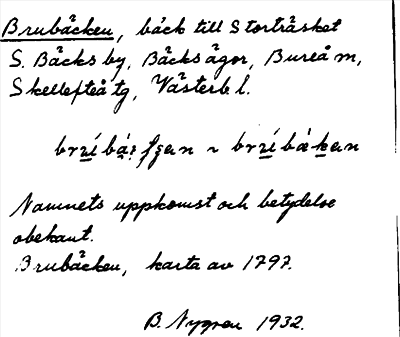 Brubäcken, bäck till Storträsket
S. Bäcks by, Bäcksägor, Bureå m,
Skellefteå tg, Västerb l.
Namnets uppkomst och betydelse
obekant.
Brubäcken, karta av 1797.
B. Nygren 1932.